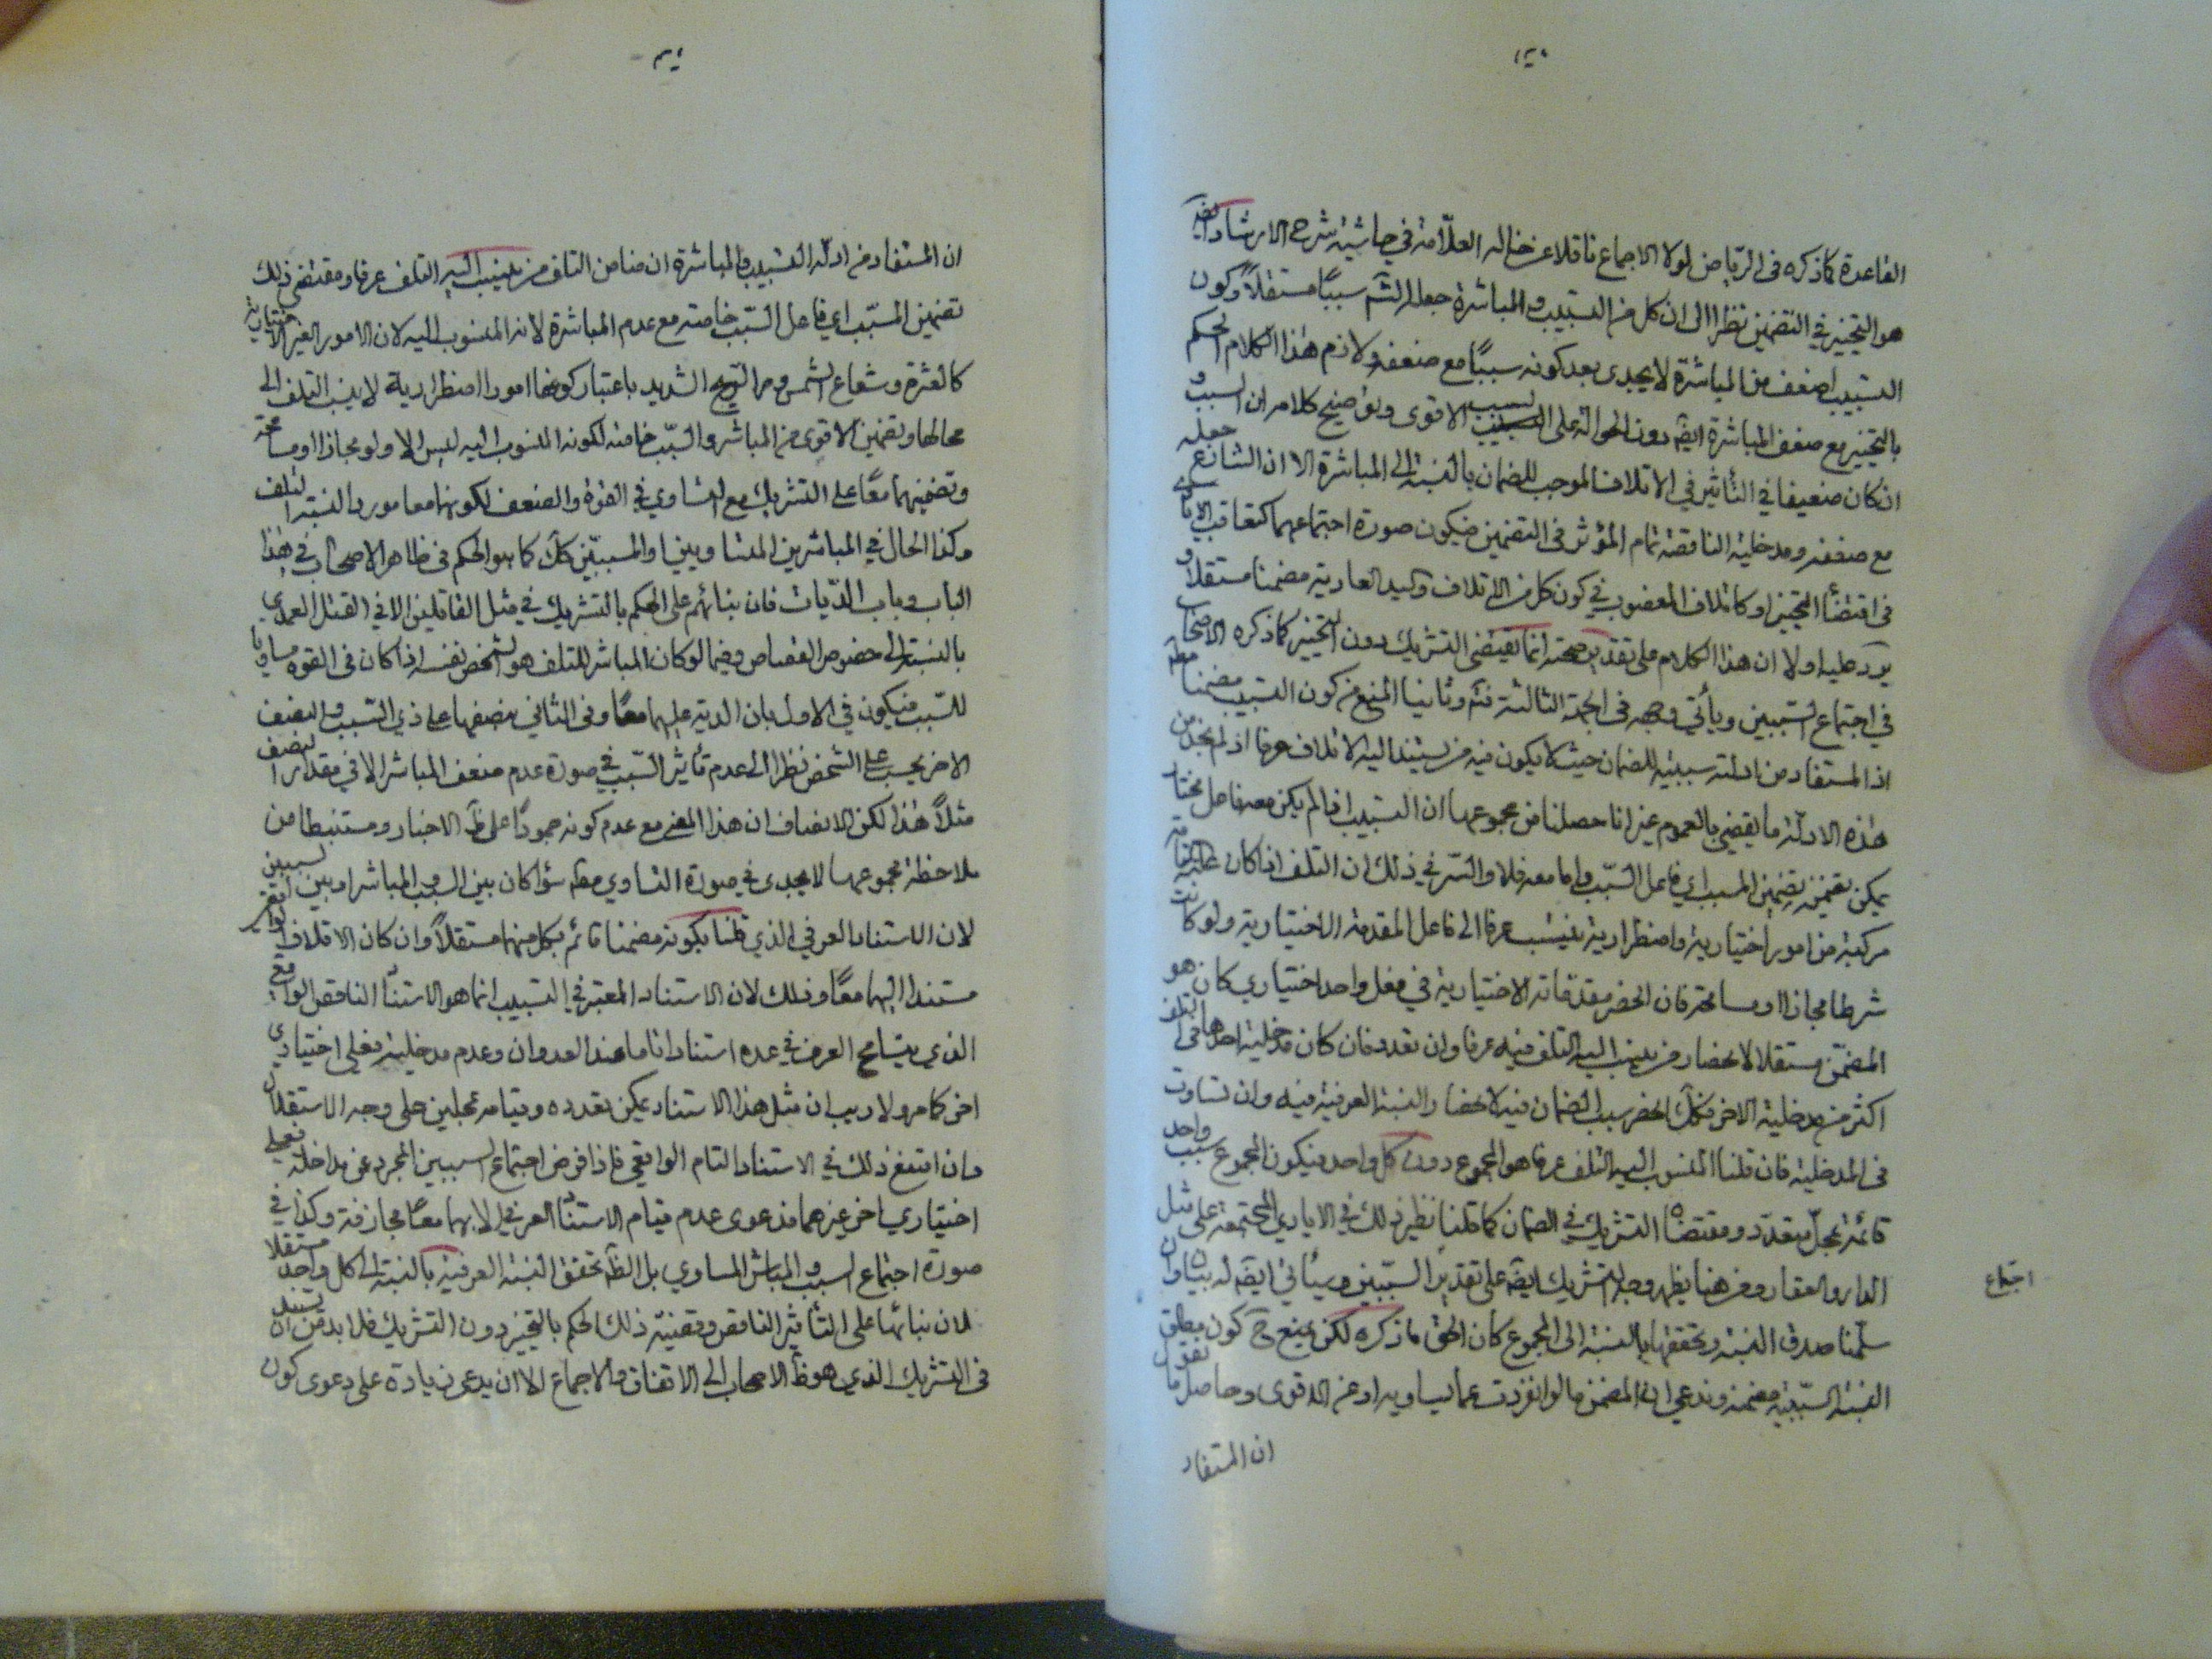 القاعدة كما ذكره فى الرياض لولا الاجماع ناقلا عن خاله العلّامة في حاشية شرح الارشاد
هو التخيير في التضمين نظرا الى ان كل من التسبيب والمباشرة جعله الشم سببًا مستقلاً وكون
التسبيب اضعف من المباشرة لا يجدى بعد كونه سببًا مع ضعفه ولازم هذا الكلام الحكم
بالتخيير مع ضعف المباشرة ايضً دون الحوالة على السبب الاقوى وتوضيح كلامه ان السبب و
ان كان ضعيفا في التأثير في الاتلاف الموجب للضمان بالنسبة الى المباشرة الا ان الشارع جعله
مع ضعفه ومدخليته الناقصة تمام المؤثر فى التضمين فيكون صورة اجتماعهما كتعاقب الايادي
فى اقتضأ التخيير او كاتلاف المغصوب في كون كل من الاتلاف وكيد العارية مضمنا مستقلا و
يرد عليه اولا ان هذا الكلام على تقدير صحته انما يقتضى التشريك دون التخيير كما ذكره الاصحاب
في اجتماع السببين ويأتي وجهه فى الجهة الثالثة وثانيا المنع من كون التسبيب مضمنا مطلقا
اذ المستفاد من ادلته سببيته للضمان حيث لا يكون فيه من يستند اليه الاتلاف عرفا اذ لم نجد من
هذه الادلة ما يقضي بالعموم غير انا حصلنا من مجموعها ان التسبيب اذا لم يكن معه فاعل مختار
يمكن تضمين المسبب اي فاعل السبب واما معه فلا والسّر في ذلك ان التلف اذا كان
مركبة من امور اختيارية واضطرارية ينسب عرفا الى فاعل المقدمة الاختيارية ولو كانت
شرطا مجازا او مسامحة فان انحصر مقدماته الاختيارية في فعل واحد اختياري كان هو
المضمّن مستقلا لانحصار من ينسب اليه التلف فيه عرفا وان تعدد فان كان مدخلية احدها فى التلف
اكثر من مدخلية الاخر فكك انحصر سبب الضمان فيه لانحصار النسبة العرفية فيه وان تساوت
فى المدخلية فان قلنا المنسوب اليه التلف عرفا هو المجموع دون كل واحد فيكون المجموع سبب واحد
قائمة بمحلّ متعدّد ومقتضاه التشريك في الضمان كما قلنا نظير ذلك في الايادي المجتمعة على مثل
الدار والعقار ومن هنا يظهر وجه التشريك ايضً على تقدير السببين وسيأتي ايضً له بيان وان
اجتماع
سلّمنا صدق النسبة وتحققها بالنسبة الى المجموع كان الحق ما ذكره لكن نمنع ح كون مطلق
النسبة السببية مضمنة وندعي ان المضمن ما لو انفردت عما يساويه او عن الاقوى وحاصل ما نقول
ان المستفاد
ان المستفاد من ادلة التسبيب والمباشرة ان ضامن التالف من ينسب اليه التلف عرفا ومقتضى ذلك
تضمين المسبّب اي فاعل السّبب خاصة مع عدم المباشرة لانه المنسوب اليه لان الامور الغير الاختيارية
كالعثرة وشعاع الشمس ومر الريح الشديد باعتبار كونها امورا اضطرارية لا ينسب التلف الى
محالها وتضمين الاقوى من المباشر والسّبب خاصة لكونه المنسوب اليه ليس الا ولو مجازا او مسامحة
وتضمينهما معًا على التشريك مع التساوي في القوة والضعف لكونهما معا موردا لنسبة التلف
وكذا الحال في المباشرين المتساويين او المسببين كك كما هو الحكم فى ظاهر الاصحاب في هذا
الباب وباب الدّيات فان بنائهم على الحكم بالتشريك في مثل القاتلين الا في القتل العمدي
بالنسبة الى خصوص القصاص وفيما لو كان المباشر للتلف هو الشخص نفسه اذا كان فى القوة مساويا
للسّبب فيكون في الاول بان الدية عليهما معًا وفى الثاني نصفها على ذي السّبب والنصف
الاخر يحسب على الشخص نظرا الى عدم تأثير السّبب في صورة عدم ضعف المباشر الا في مقدار النصف
مثلاً هذا لكن الانصاف ان هذا المعنى مع عدم كونه جمودًا على ظَ الاخبار ومستنبطا من
ملاحظة مجموعها لا يجدى في صورة التساوي مطَ سواء كان بين السبب والمباشر او بين السببين
لان الاستناد العرفي الذي قلنا بكونه مضمنا قائم بكل منهما مستقلاً وان كان الاتلاف
مستندا اليهما معًا وذلك لان الاستناد المعتبر في التسبيب انما هو الاستنأ الناقص الواقعي
الذي يتسامح العرف في عده استنادا تاما عند العدوان وعدم مدخلية فعلى اختيارى
اخر كما مر ولا ريب ان مثل هذا الاستناد يمكن تعدده وقيامه بمحلين على وجه الاستقلال
وان امتنع ذلك في الاستناد التام الواقعي فاذا فرض اجتماع السببين المجرد عن مداخلة فعل
اختياري اخر غيرهما فدعوى عدم قيام الاستنأ العرفي الا بهما معًا مجازفة وكذا في
صورة اجتماع السبب والمباشر المساوي بل الظَ تحقق النسبة العرفية بالنسبة الى كل واحد مستقلا
لان بنائها على التأثير الناقص وقضيّة ذلك الحكم بالتخيير دون التشريك فلا بد من ان يستند
فى التشريك الذي هو ظَ الاصحاب الى الاتفاق والاجماع الا ان يدعى زيادة على دعوى كون